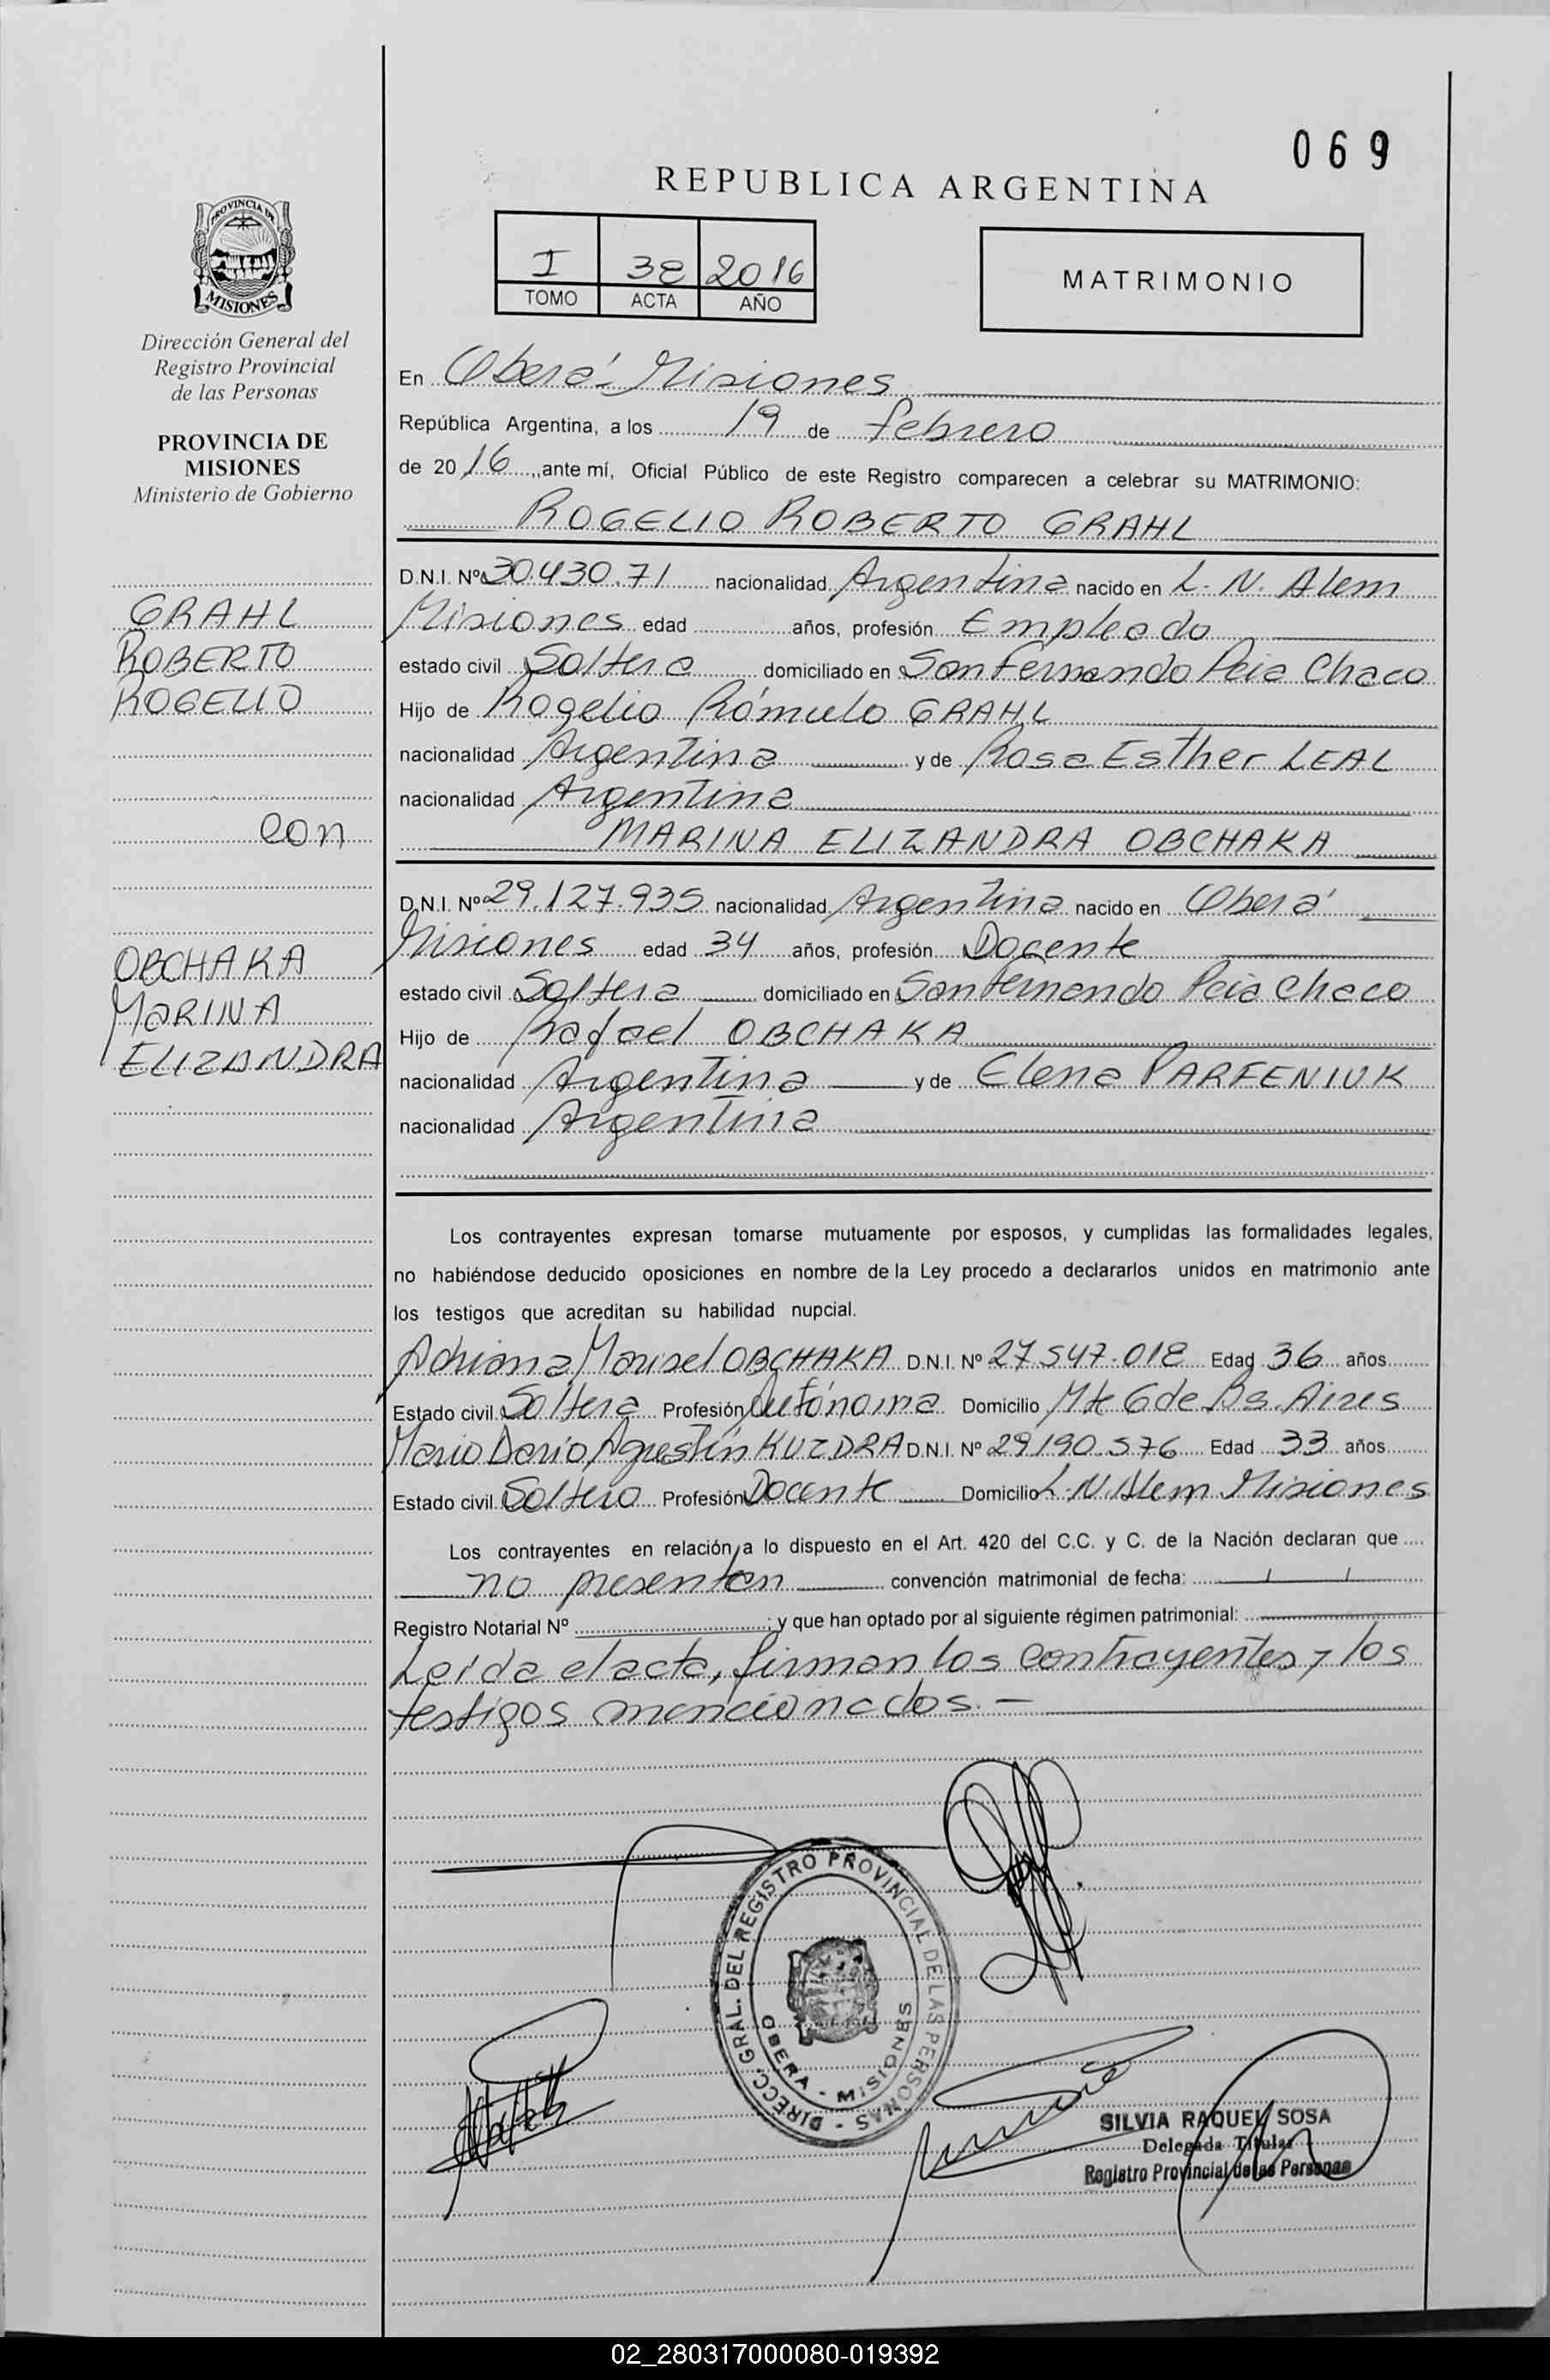 069
REPUBLICA ARGENTINA
PROVINCIA DE
MISIONES
I 38 2016
TOMO ACTA AÑO
MATRIMONIO
Dirección General del
Registro Provincial
de las Personas
PROVINCIA DE
MISIONES
Ministerio de Gobierno
GRAHL
ROBERTO
ROGELIO
con
OBCHAKA
MARINA
ELIZANDRA
En Oberá - Misiones
República Argentina, a los 19 de febrero
de 20 16, ante mí, Oficial Público de este Registro comparecen a celebrar su MATRIMONIO:
ROGELIO ROBERTO GRAHL
D.N.I. Nº 30.430.71 nacionalidad Argentina nacido en L. N. Alem
Misiones edad años, profesión Empleado
estado civil Soltero domiciliado en San Fernando Pcia Chaco
Hijo de Rogelio Rómulo GRAHL
nacionalidad Argentina y de Rosa Esther LEAL
nacionalidad Argentina
MARINA ELIZANDRA OBCHAKA
D.N.I. Nº 29.127.935 nacionalidad Argentina nacido en Oberá
Misiones edad 34 años, profesión Docente
estado civil Soltera domiciliado en San Fernando Pcia Chaco
Hijo de Rafael OBCHAKA
nacionalidad Argentina y de Elena PARFENIUK
nacionalidad Argentina
Los contrayentes expresan tomarse mutuamente por esposos, y cumplidas las formalidades legales,
no habiéndose deducido oposiciones en nombre de la Ley procedo a declararlos unidos en matrimonio ante
los testigos que acreditan su habilidad nupcial.
Adriana Marisel OBCHAKA D.N.I. Nº 27.547.018 Edad 36 años
Estado civil Soltera Profesión Autónoma Domicilio Mte G de Bs. Aires
Mario Dario Agustín KUZDRA D.N.I. Nº 29190.576 Edad 33 años
Estado civil Soltero Profesión Docente Domicilio L. N. Alem Misiones
Los contrayentes en relación a lo dispuesto en el Art. 420 del C.C. y C. de la Nación declaran que
no presentan convención matrimonial de fecha: / /
Registro Notarial Nº ; y que han optado por al siguiente régimen patrimonial:
Leída el acta, firman los contrayentes y los
testigos mencionados. -
DIRECC. GRAL. DEL REGISTRO PROVINCIAL DE LAS PERSONAS -
OBERA - MISIONES
SILVIA RAQUEL SOSA
Delegada Titular
Registro Provincial de las Personas
02_280317000080-019392